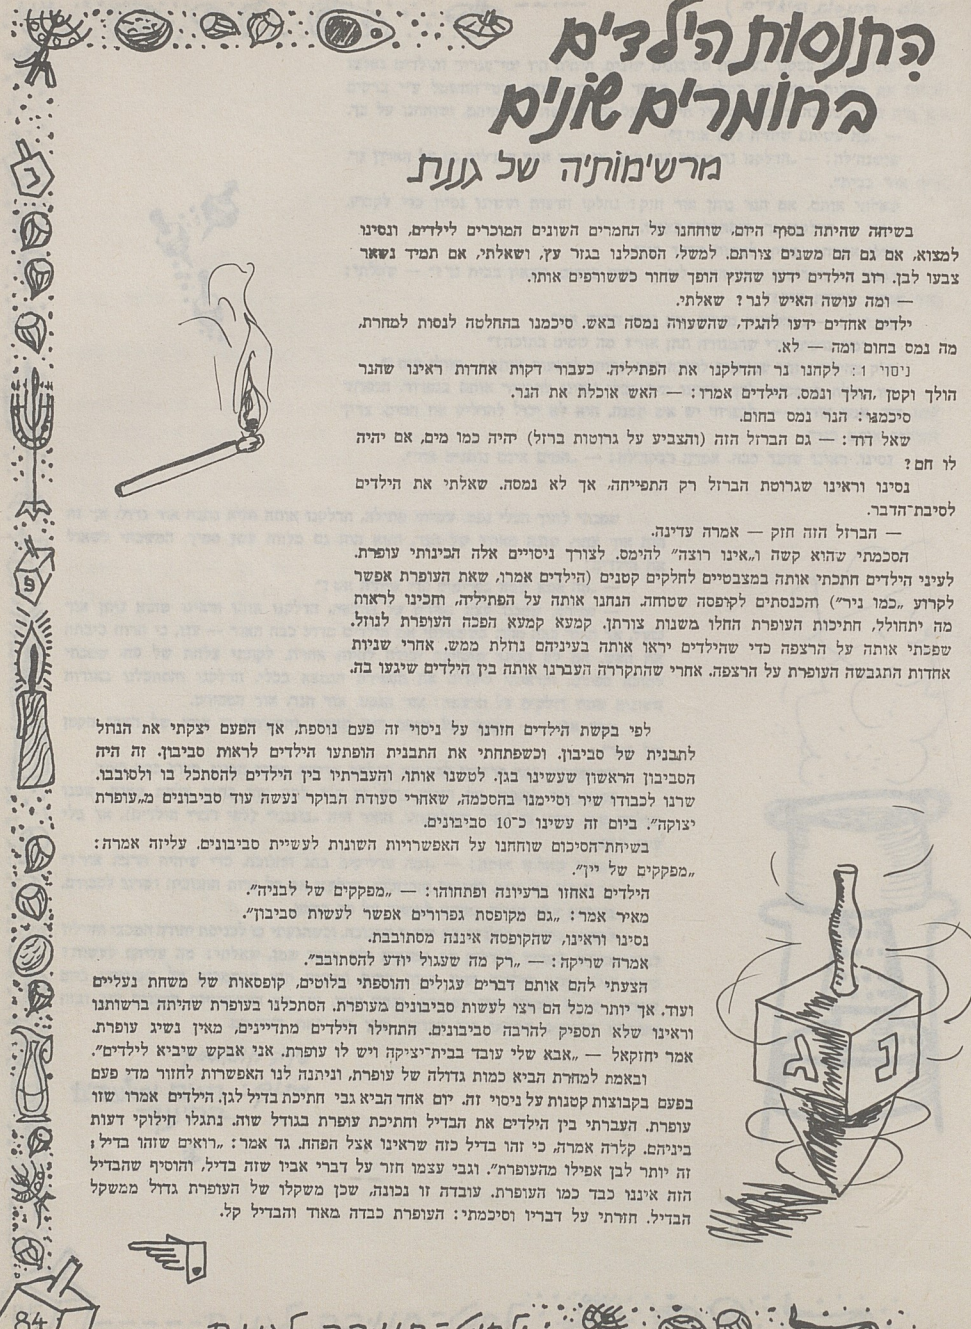 התנסות הילדים
בחומרים שונים
מרשימותיה של גננת
בשיחה שהיתה בסוף היום, שוחחנו על החמרים השונים המוכרים לילדים, ונסינו
למצוא, אם גם הם משנים צורתם. למשל, הסתכלנו בגזר עץ, ושאלתי, אם תמיד נשאר
צבעו לבן. רוב הילדים ידעו שהעץ הופך שחור כששורפים אותו.
— ומה עושה האיש לנר? שאלתי.
ילדים אחדים ידעו להגיד, שהשעווה נמסה באש. סיכמנו בהחלטה לנסות למחרת,
מה נמס בחום ומה — לא.
ניסוי 1: לקחנו נר והדלקנו את הפתיליה. כעבור דקות אחדות ראינו שהנר
הולך וקטן, הולך ונמס. הילדים אמרו: — האש אוכלת את הנר.
סיכמנו: הנר נמס בחום.
שאל דוד: — גם הברזל הזה (והצביע על גרוטת ברזל) יהיה כמו מים, אם יהיה
לו חם?
נסינו וראינו שגרוטת הברזל רק התפייחה, אך לא נמסה. שאלתי את הילדים
לסיבת־הדבר.
— הברזל הזה חזק — אמרה עדינה.
הסכמתי שהוא קשה ו„אינו רוצה” להימס. לצורך ניסויים אלה הכינותי עופרת.
לעיני הילדים חתכתי אותה במצבטיים לחלקים קטנים (הילדים אמרו, שאת העופרת אפשר
לקרוע „כמו ניר”) והכנסתים לקופסה שטוחה. הנחנו אותה על הפתיליה, וחכינו לראות
מה יתחולל, חתיכות העופרת החלו משנות צורתן. קמעא קמעא הפכה העופרת לנוזל.
שפכתי אותה על הרצפה כדי שהילדים יראו אותה בעיניהם נוזלת ממש. אחרי שניות
אחדות התגבשה העופרת על הרצפה. אחרי שהתקררה העברנו אותה בין הילדים שיגעו בה.
לפי בקשת הילדים חזרנו על ניסוי זה פעם נוספת, אך הפעם יצקתי את הנוזל
לתבנית של סביבון. וכשפתחתי את התבנית הופתעו הילדים לראות סביבון. זה היה
הסביבון הראשון שעשינו בגן. לטשנו אותו, והעברתיו בין הילדים להסתכל בו ולסובבו.
שרנו לכבודו שיר וסיימנו בהסכמה, שאחרי סעודת הבוקר נעשה עוד סביבונים מ„עופרת
יצוקה”. ביום זה עשינו כ־10 סביבונים.
בשיחת־הסיכום שוחחנו על האפשרויות השונות לעשיית סביבונים. עליזה אמרה:
„מפקקים של יין”.
הילדים נאחזו ברעיונה ופתחוהו: — „מפקקים של לבניה”.
מאיר אמר: „גם מקופסת גפרורים אפשר לעשות סביבון”.
נסינו וראינו, שהקופסה איננה מסתובבת.
אמרה שריקה: — „רק מה שעגול יודע להסתובב”.
הצעתי להם אותם דברים עגולים והוספתי בלוטים, קופסאות של משחת נעליים
ועוד. אך יותר מכל הם רצו לעשות סביבונים מעופרת. הסתכלנו בעופרת שהיתה ברשותנו
וראינו שלא תספיק להרבה סביבונים. התחילו הילדים מתדיינים, מאין נשיג עופרת.
אמר יחזקאל — „אבא שלי עובד בבית־יציקה ויש לו עופרת. אני אבקש שיביא לילדים”.
ובאמת למחרת הביא כמות גדולה של עופרת, וניתנה לנו האפשרות לחזור מדי פעם
בפעם בקבוצות קטנות על ניסוי זה. יום אחד הביא גבי חתיכת בדיל לגן. הילדים אמרו שזו
עופרת. העברתי בין הילדים את הבדיל וחתיכת עופרת בגודל שוה. נתגלו חילוקי דעות
ביניהם. קלרה אמרה, כי זהו בדיל כזה שראינו אצל הפחח. גד אמר: „רואים שזהו בדיל;
זה יותר לבן אפילו מהעופרת”. וגבי עצמו חזר על דברי אביו שזה בדיל, והוסיף שהבדיל
הזה איננו כבד כמו העופרת. עובדה זו נכונה, שכן משקלו של העופרת גדול ממשקל
הבדיל. חזרתי על דבריו וסיכמתי: העופרת כבדה מאוד והבדיל קל.
נ
ג
84